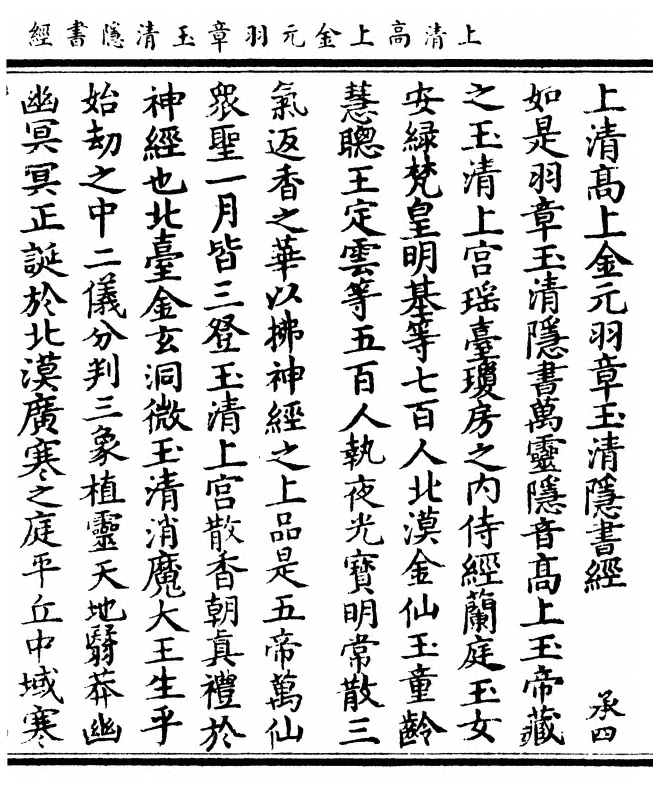 上清高上金元羽章玉清隱書經
上清高上金元羽章玉清隱書經 承四
如是羽章玉清隱書萬靈隱音高上玉帝藏
之玉清上宮瑶臺瓊房之內侍經蘭庭玉女
安緑梵皇明基等七百人北漠金仙玉童齡
慧聰王定雲等五百人執夜光寶明常散三
氣返香之華以拂神經之上品是五帝萬仙
衆聖一月皆三登玉清上宮散香朝真禮於
神經也北臺金玄洞微玉清消魔大王生乎
始劫之中二儀分判三象植靈天地翳莽幽
幽冥冥正誕於北漠廣寒之庭平丘中域寒